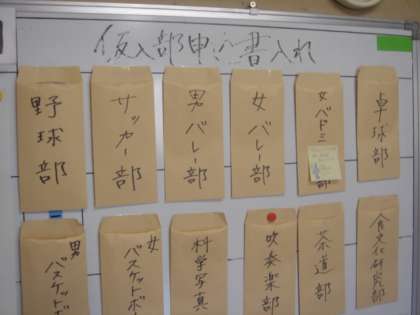 仮入部申込書入れ
野球部
サッカー部
男バレー部
女バレー部
女バドミ
卓球部
男バスケットボ
女バスケットボー
科学写真
吹奏楽部
茶道部
食文化研究部